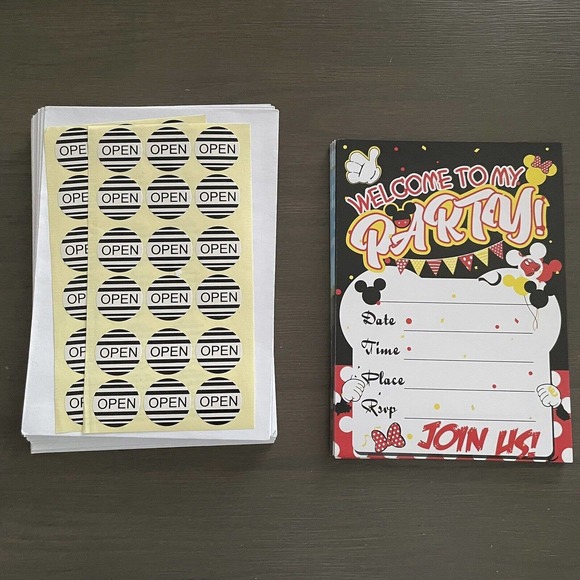 OPE OPEN OPEN OPEN
OPE OPEN OPEN OPEN
OP OPEN OPEN OPEN
OP OPEN OPEN OPEN
OP OPEN OPEN OPEN
OPE OPEN OPEN OPEN
WELCOME TO MY
PARTY!
Date
Time
Place
Rsvp
JOIN US!